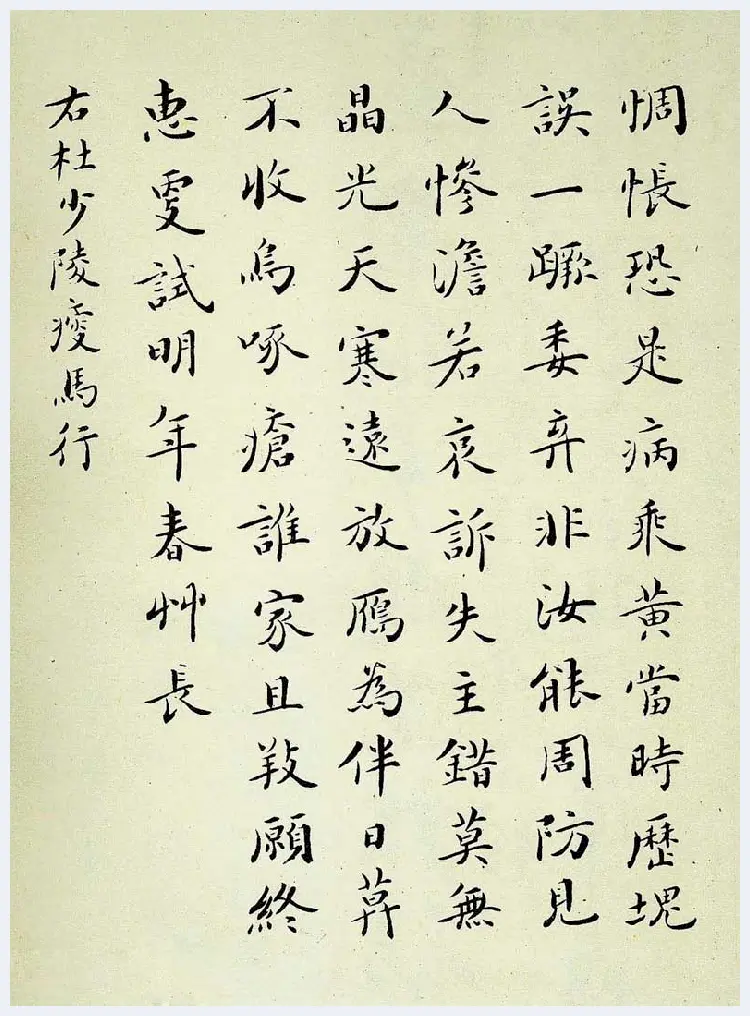 惆悵恐是病乘黃當時歷塊
誤一蹶委弃非汝能周防見
人慘澹若哀訴失主錯莫無
晶光天寒遠放鴈為伴日莫
不收烏啄瘡誰家且養願終
惠更試明年春艸長
右杜少陵瘦馬行